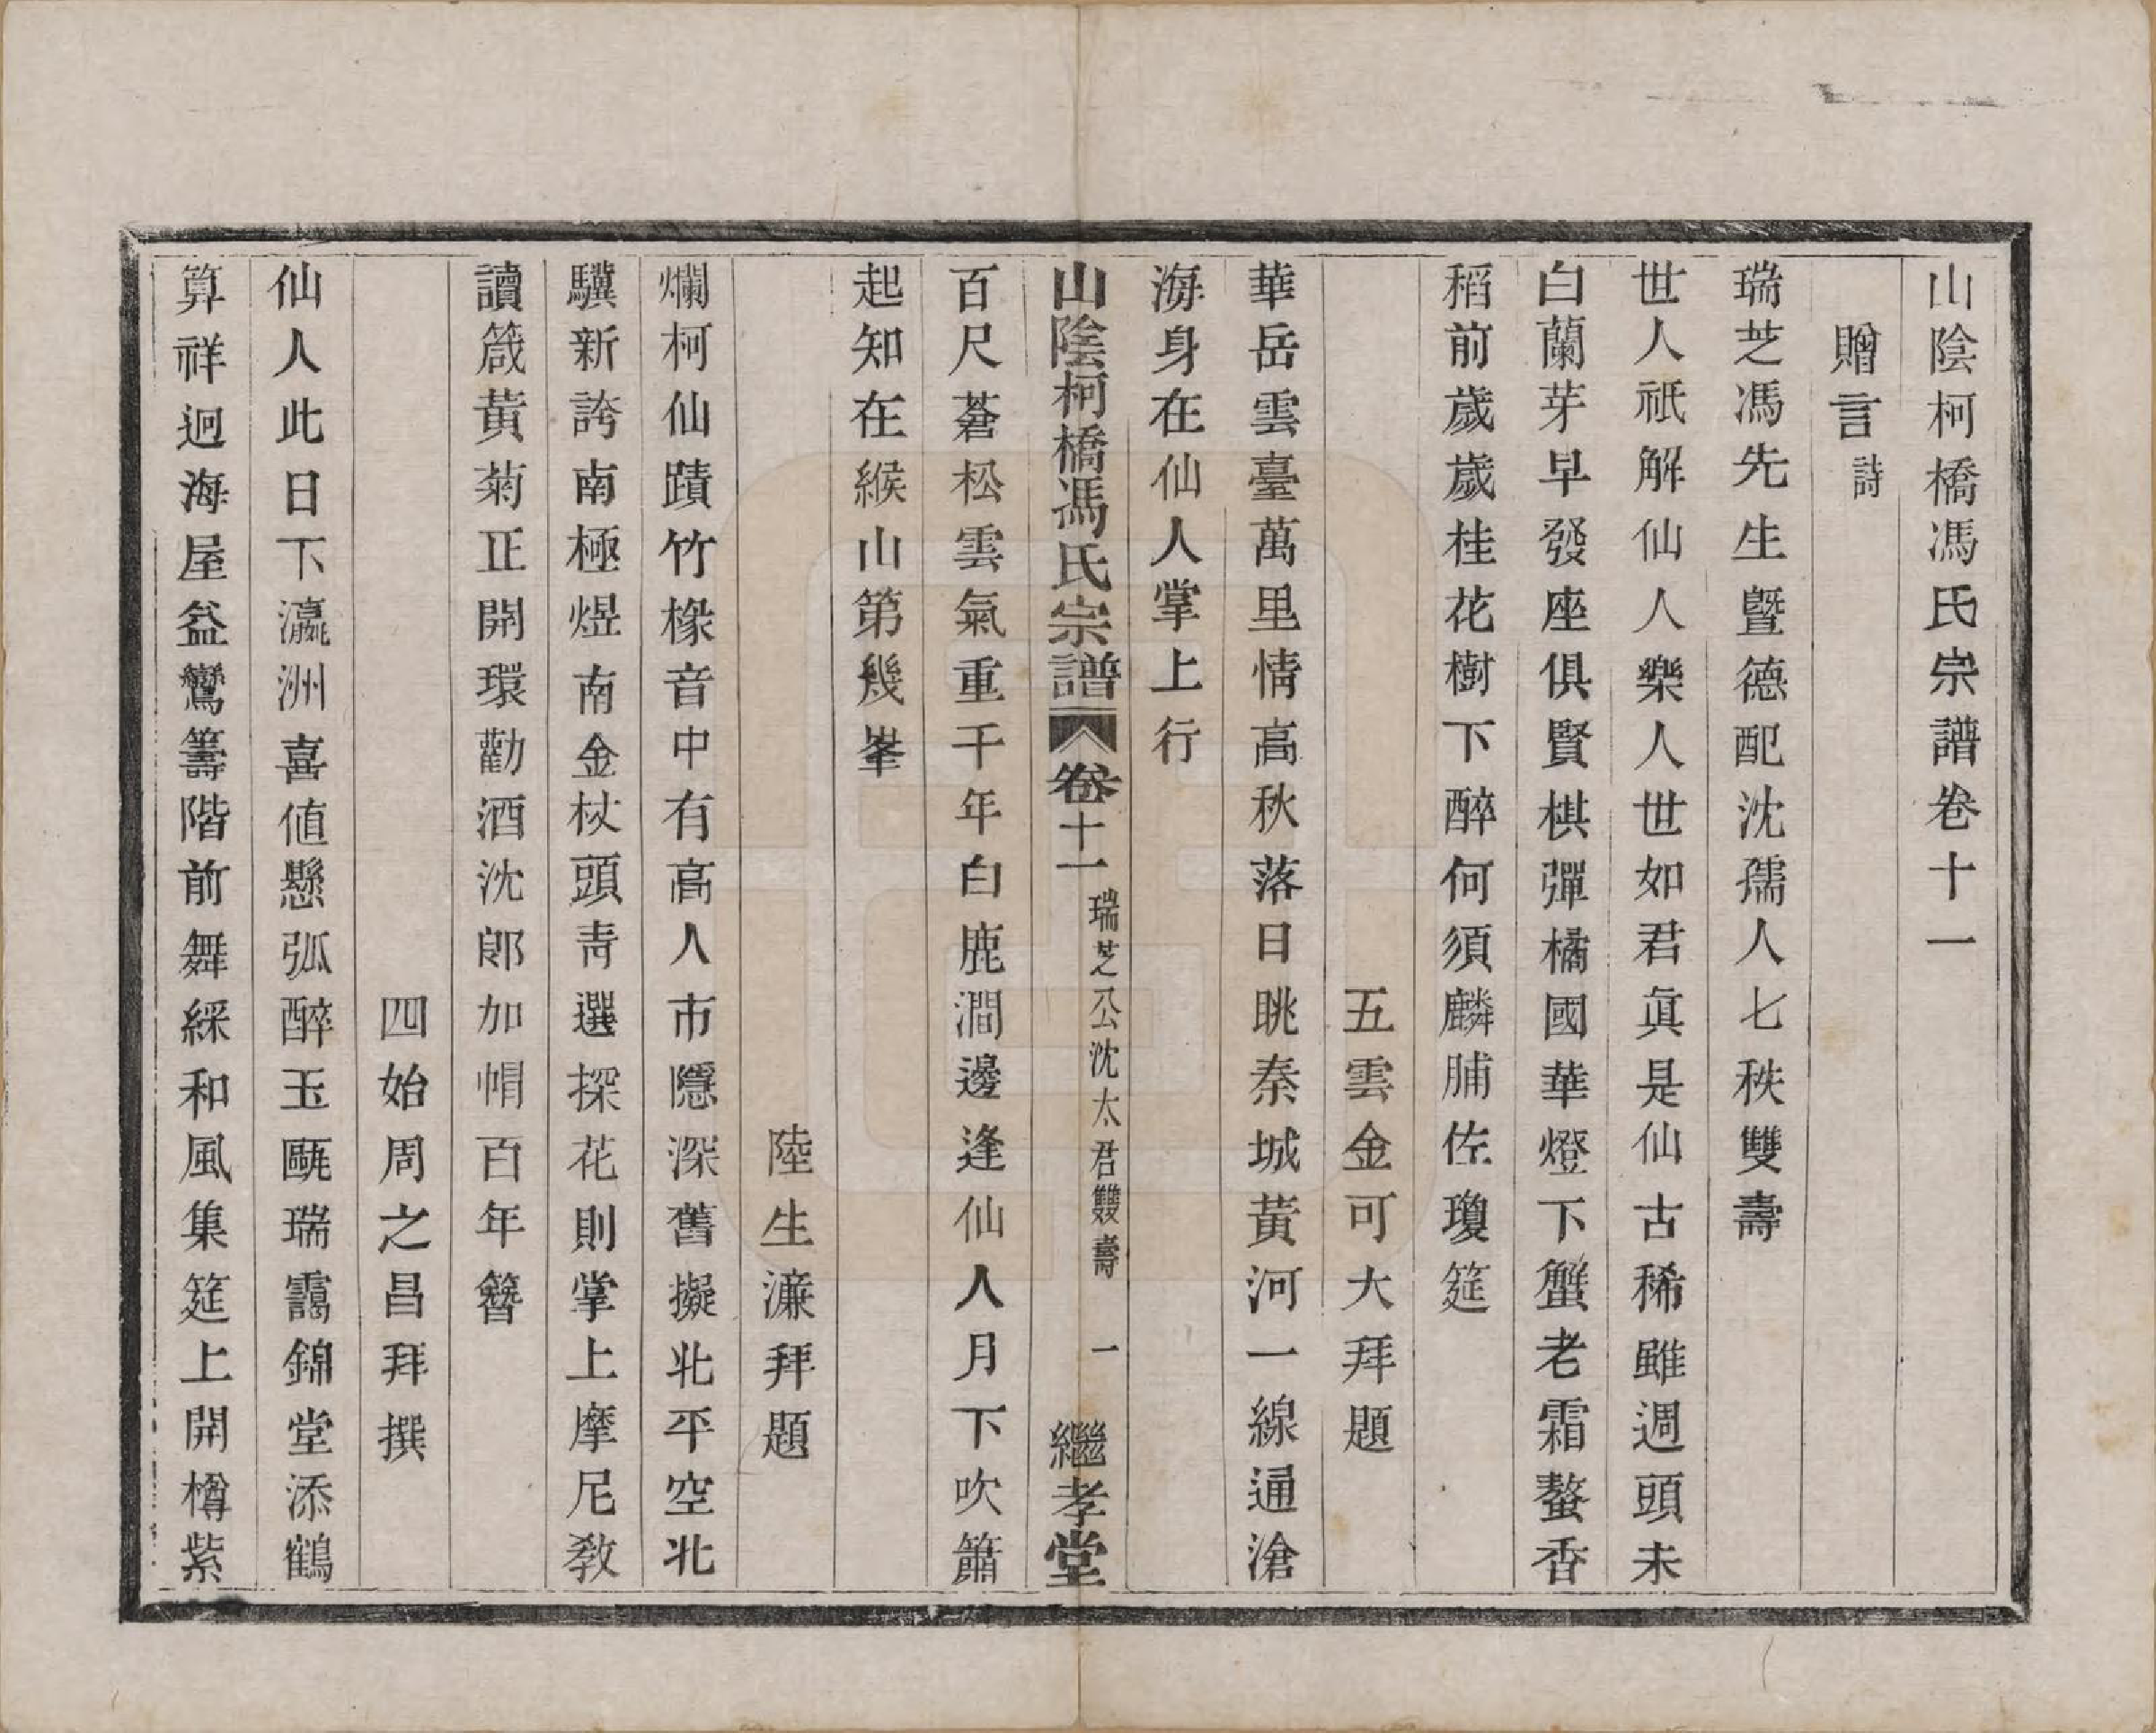 山陰柯橋馮氏宗譜卷十一
贈言詩
瑞芝馮先生曁德配沈孺人七秩雙壽
世人祇解仙人樂人世如君眞是仙古稀雖週頭未
白蘭芽早發座俱賢棋彈橘國華燈下蟹老霜螯香
稻前歲歲桂花樹下醉何須麟脯佐瓊筵
五雲金可大拜題
華岳雲臺萬里情高秋落日眺秦城黃河一線通滄
海身在仙人掌上行
山陰柯橋馮氏宗譜 卷十一 瑞芝公沈太君雙壽 一 繼孝堂
百尺蒼松雲氣重千年白鹿澗邊逢仙人月下吹簫
起知在緱山第幾峯
陸生濂拜題
爛柯仙蹟竹椽音中有高人市隱深舊擬北平空北
驥新誇南極煜南金杖頭靑選探花則掌上摩尼敎
讀箴黃菊正開環勸酒沈郞加帽百年簪
四始周之昌拜撰
仙人此日下瀛洲喜値懸弧醉玉甌瑞靄錦堂添鶴
算祥迴海屋益鸞籌階前舞綵和風集筵上開樽紫